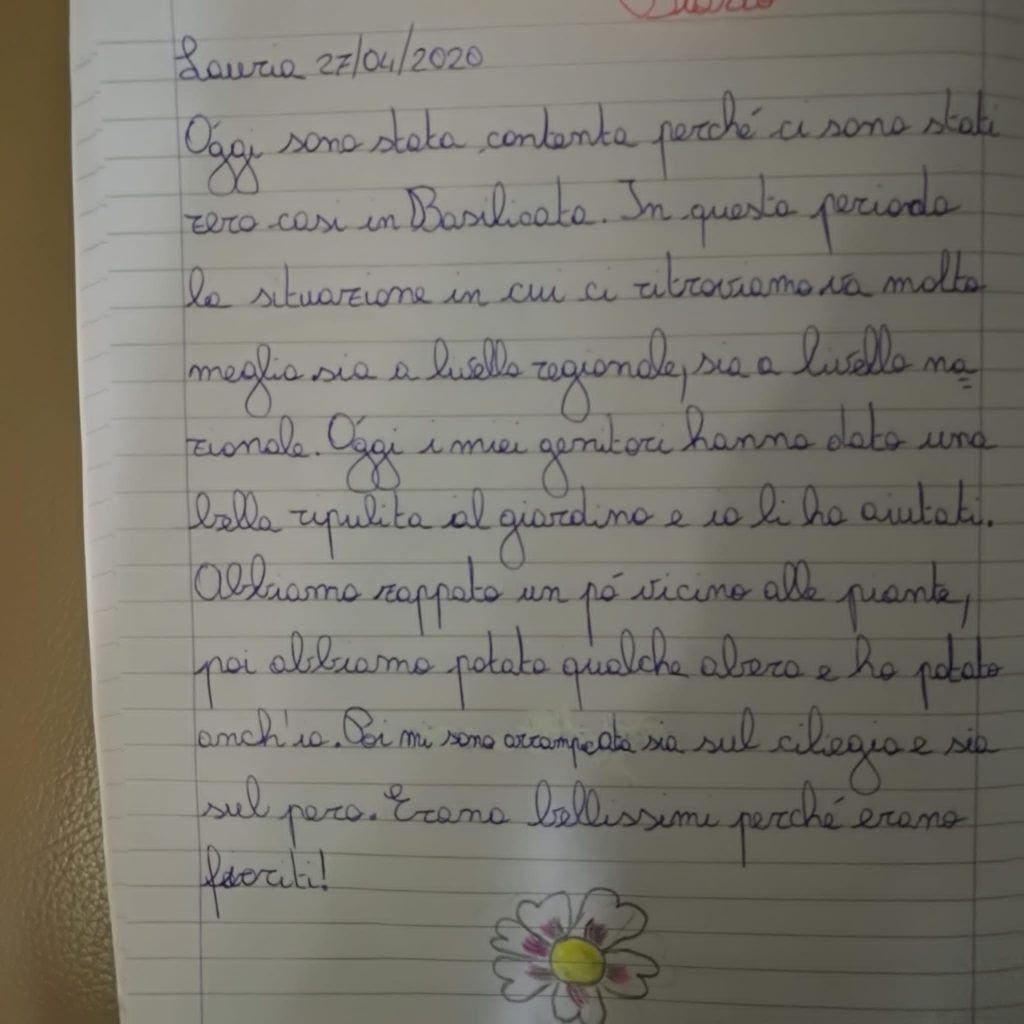 Diario
Lauria 27/04/2020
Oggi sono stata contenta perché ci sono stati
zero casi in Basilicata. In questo periodo
la situazione in cui ci ritroviamo va molto
meglio sia a livello regionale, sia a livello na=
zionale. Oggi i miei genitori hanno dato una
bella ripulita al giardino e io li ho aiutati.
Abbiamo zappato un pó vicino alle piante,
poi abbiamo potato qualche albero e ho potato
anch'io. Poi mi sono arrampicata sia sul ciliegio e sia
sul pero. Erano bellissimi perché erano
fioriti!